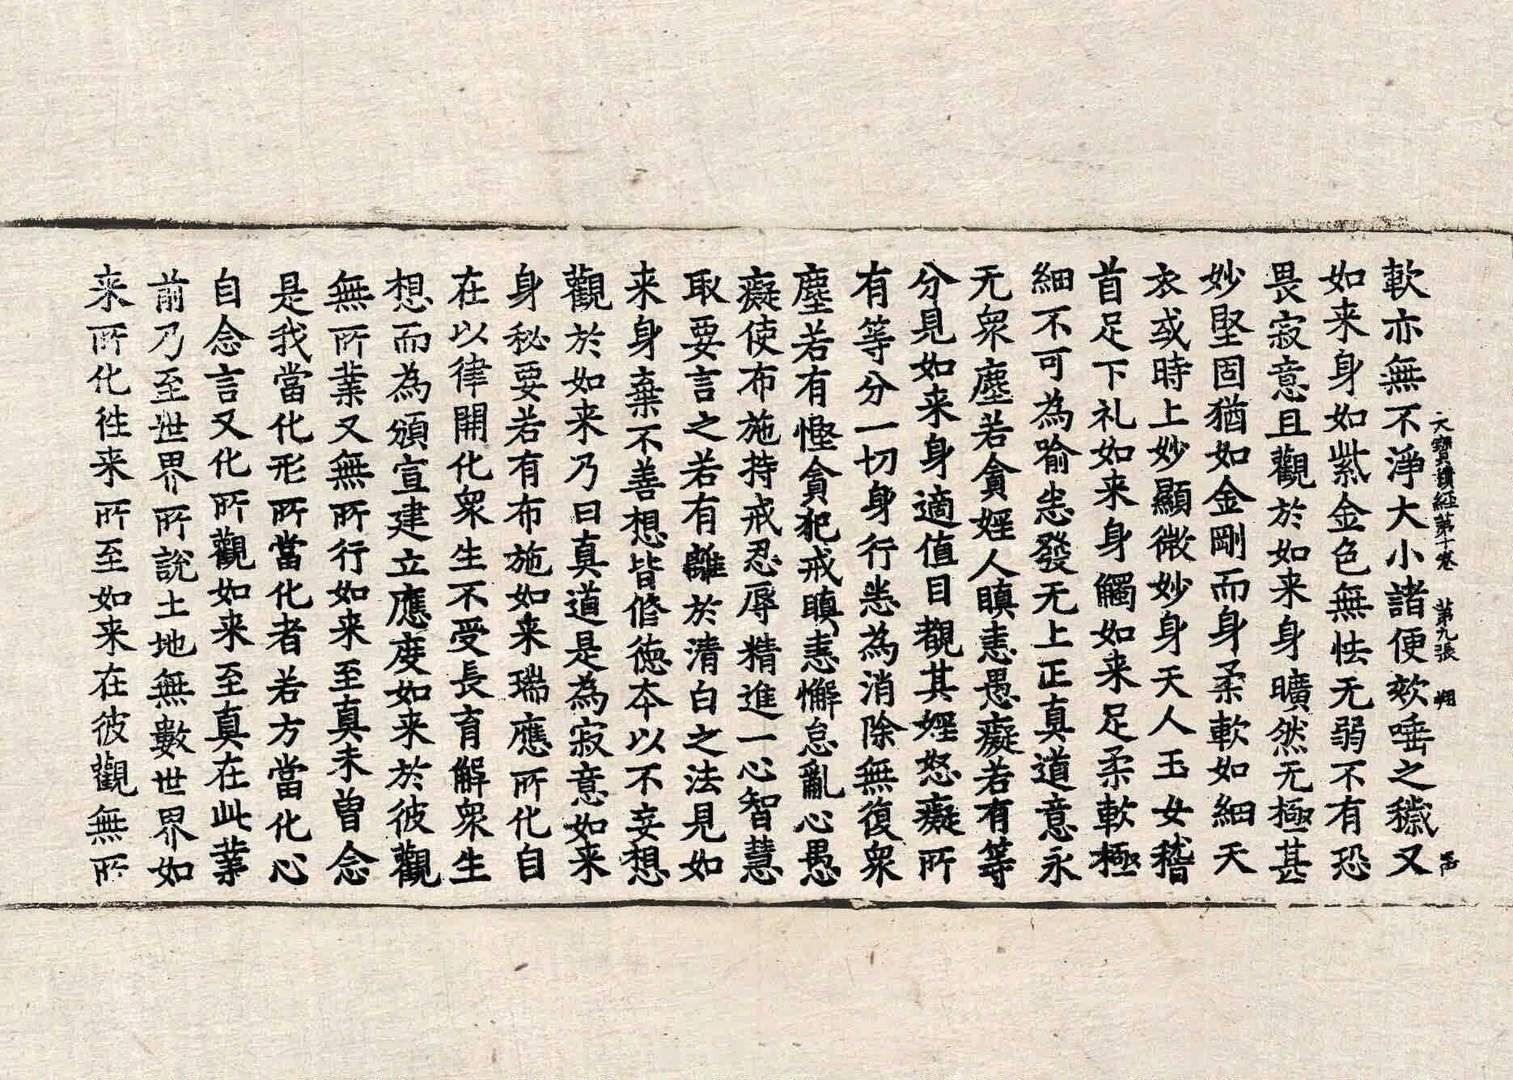 大寶積經第十卷　第九張　翔
軟亦無不淨大小諸便欬唾之穢又
如来身如紫金色無怯无弱不有恐
畏寂意且觀於如来身曠然无極甚
妙堅固猶如金剛而身柔軟如細天
衣或時上妙顯微妙身天人玉女稽
首足下礼如来身觸如来足柔軟極
細不可為喻恚發无上正真道意永
无衆塵若貪婬人瞋恚愚癡若有等
分見如来身適值目覩其婬怒癡所
有等分一切身行恚為消除無復衆
塵若有慳貪犯戒瞋恚懈怠亂心愚
癡使布施持戒忍辱精進一心智慧
取要言之若有離於清白之法見如
来身棄不善想皆俻德本以不妄想
觀於如来乃曰真道是為寂意如来
身秘要若有布施如来瑞應所化自
在以律開化衆生不受長育解衆生
想而為頒宣建立應度如来於彼觀
無所業又無所行如来至真未曽念
是我當化形所當化者若方當化心
自念言又化所觀如来至真在此業
前乃至世界所說土地無數世界如
来所化徃来所至如来在彼觀無所